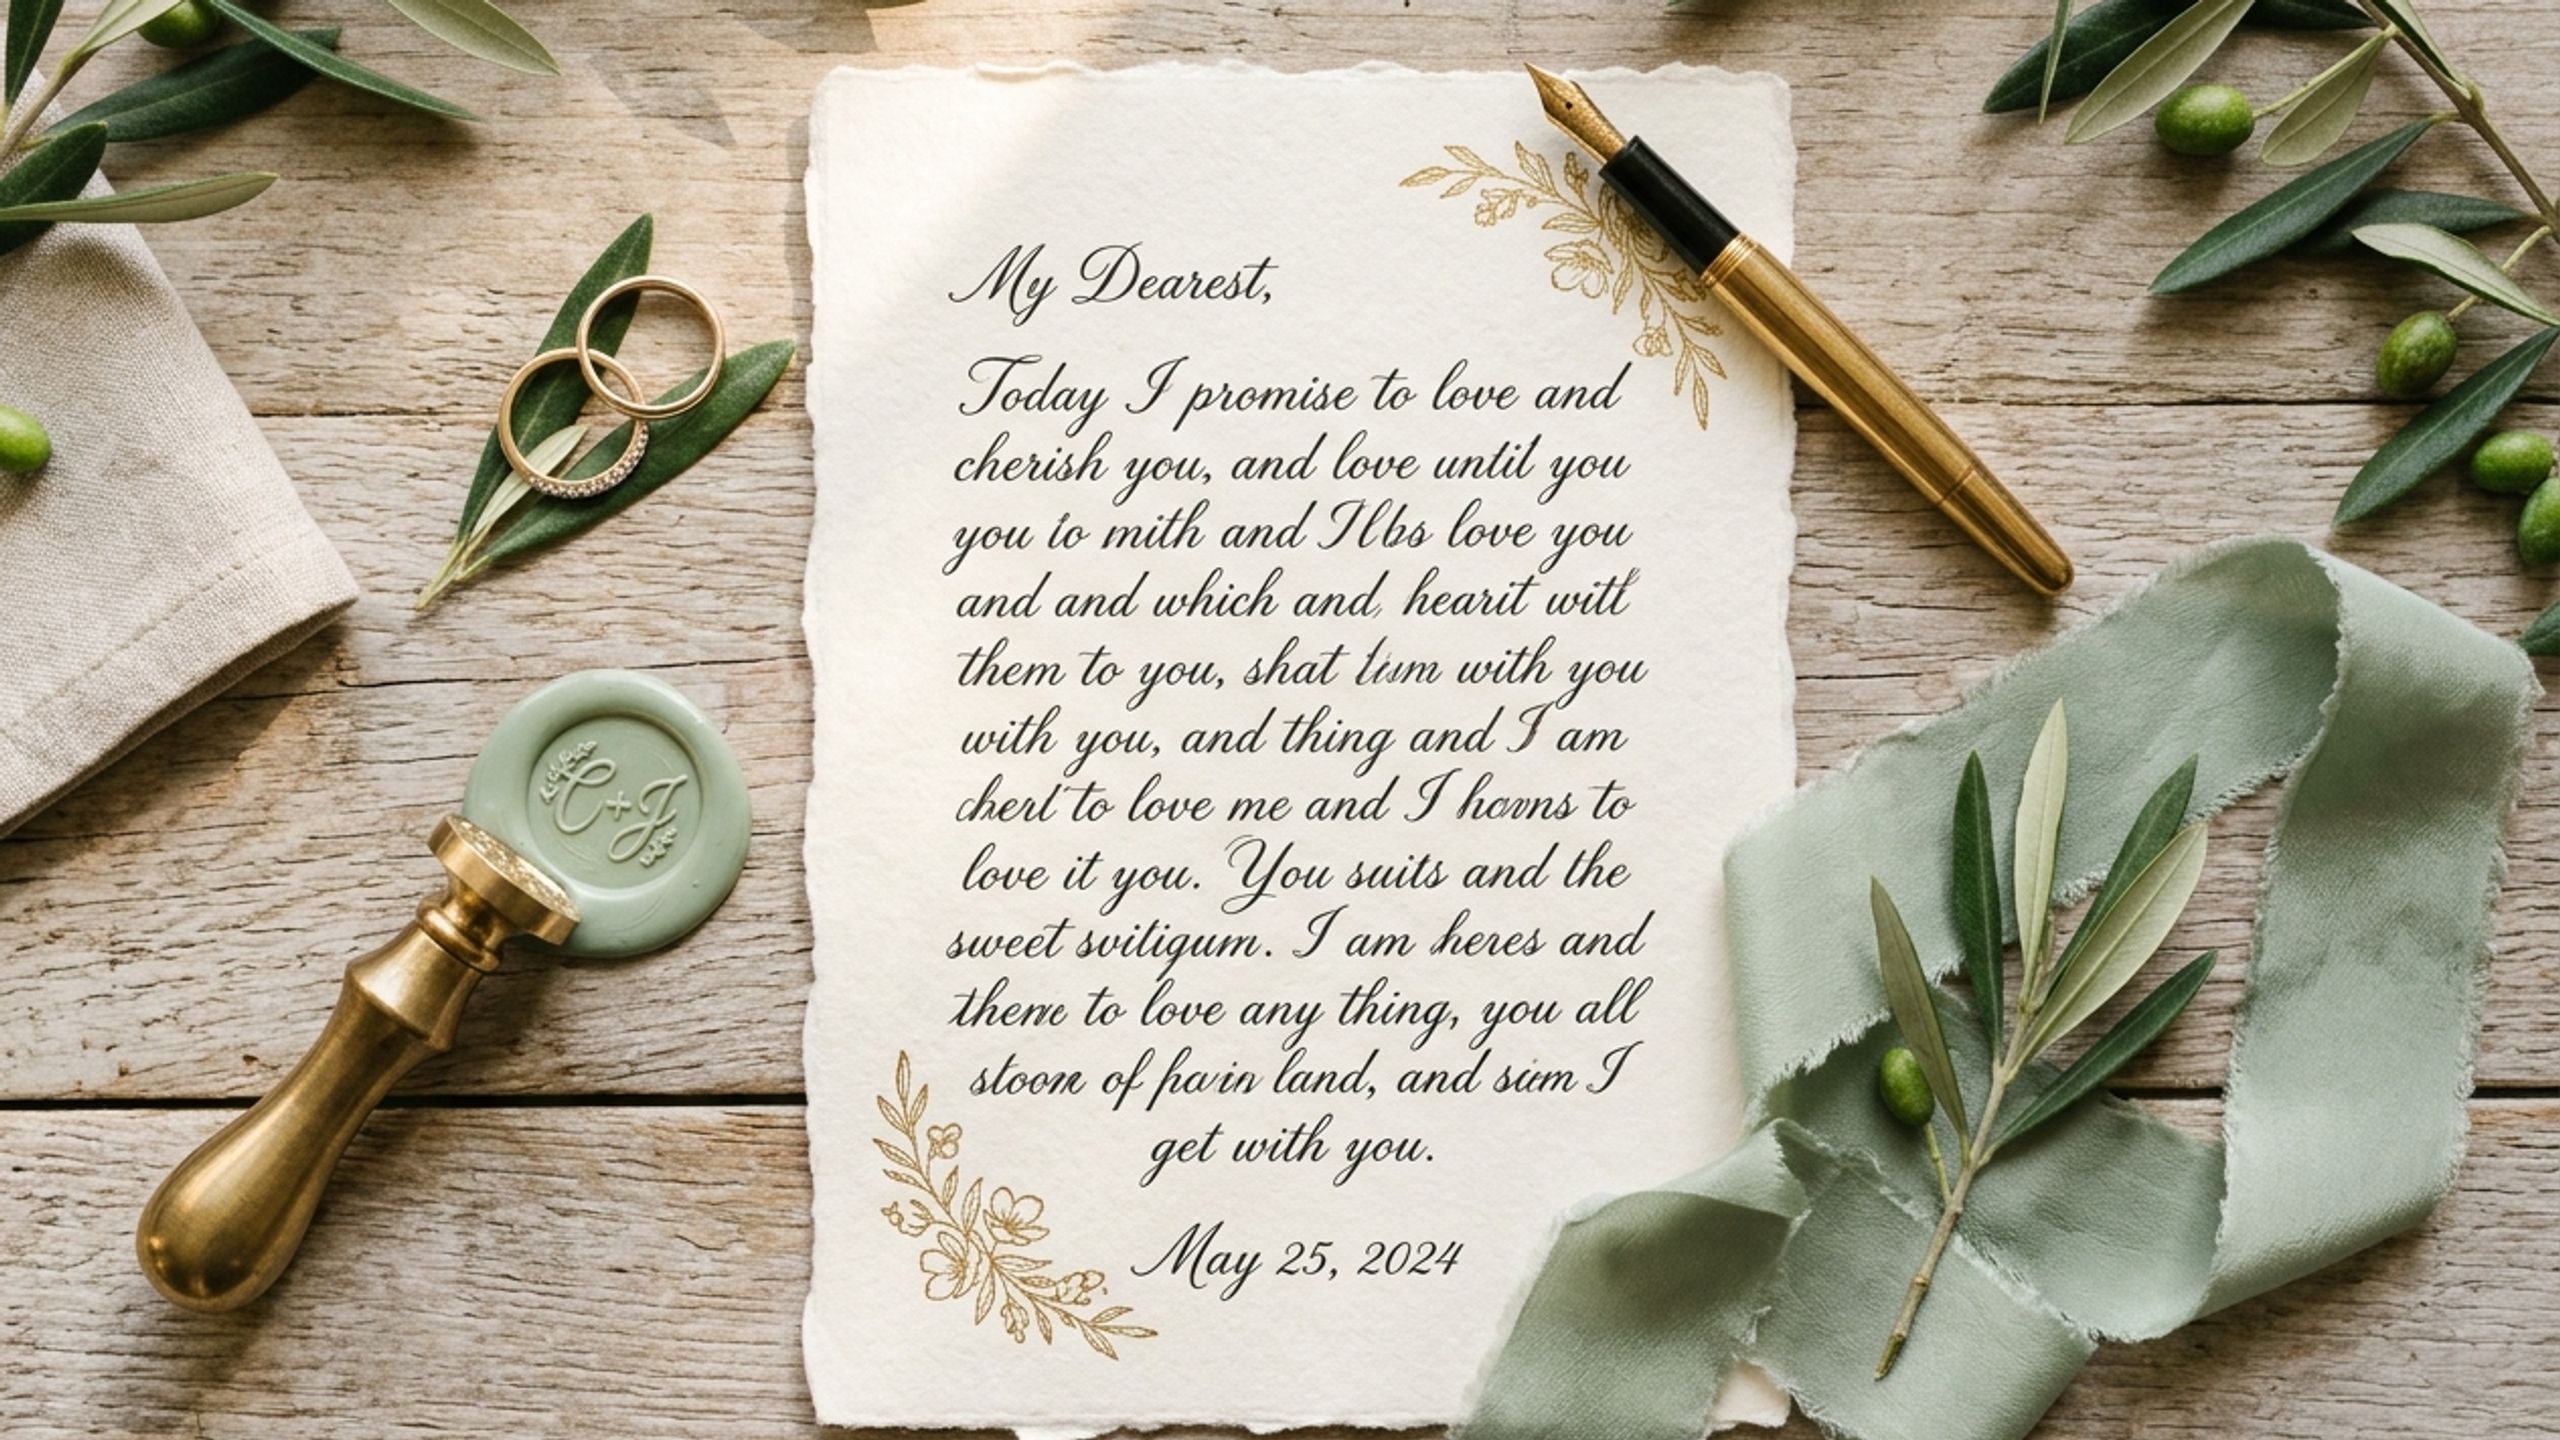 My Dearest,
Today I promise to love and
cherish you, and love until you
you to mith and Ilbs love you
and and which and, hearit witl
them to you, shat with you
with you, and thing and I am
to love me and I to
love it you. You suits and the
sweet svitigum. I am heres and
to love any thing, you all
of land, and I
get with you.
May 25, 2024
C+J